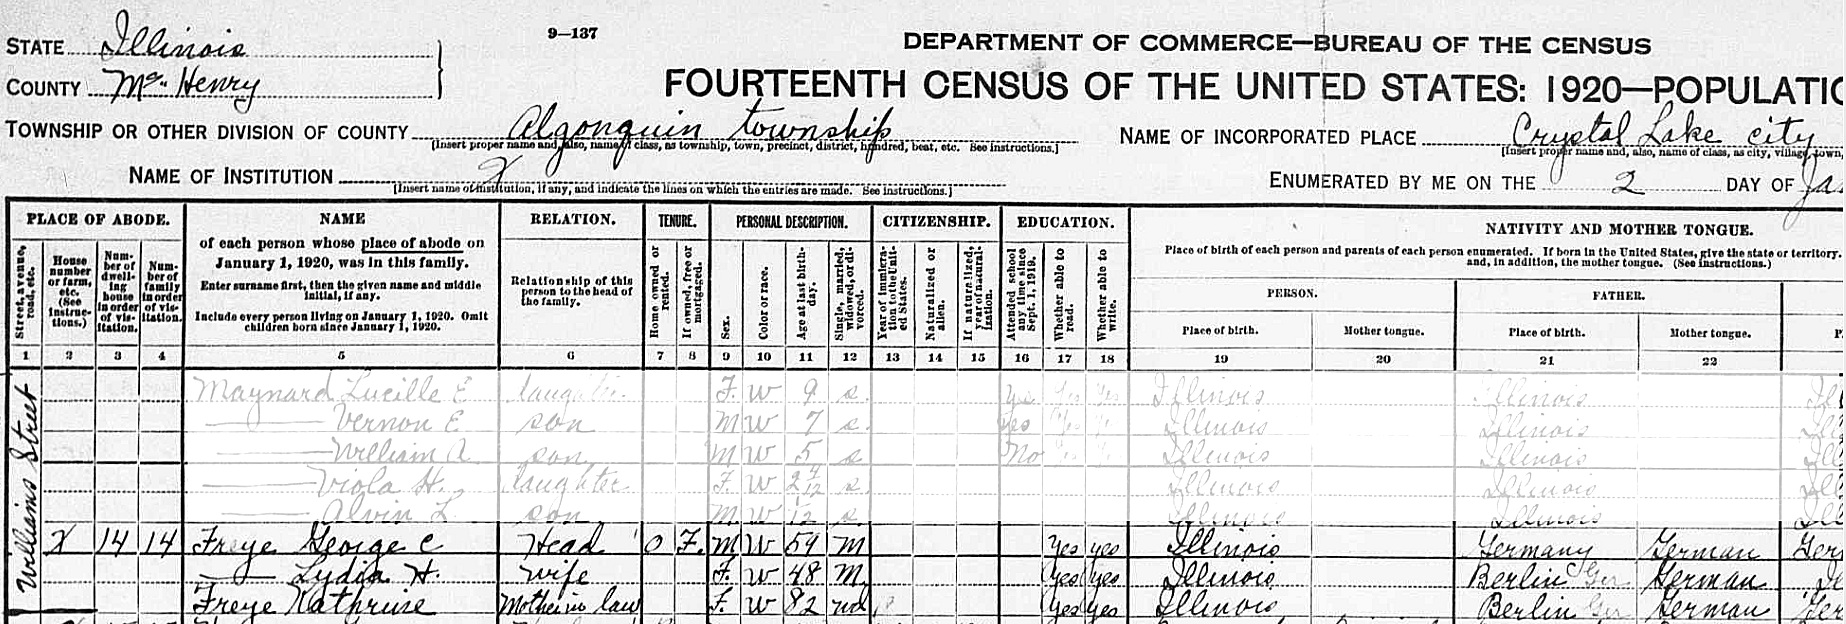 STATE Illinois
9—137
DEPARTMENT OF COMMERCE—BUREAU OF THE CENSUS
COUNTY Mc Henry
FOURTEENTH CENSUS OF THE UNITED STATES: 1920—POPULATIO
TOWNSHIP OR OTHER DIVISION OF COUNTY Algonquin township
[Insert proper name and, also, name of class, as township, town, precinct, district, hundred, beat, etc. See instructions.]
NAME OF INCORPORATED PLACE Crystal Lake city
[Insert proper name and, also, name of class, as city, village, town,
NAME OF INSTITUTION X
[Insert name of institution, if any, and indicate the lines on which the entries are made. See instructions.]
ENUMERATED BY ME ON THE 2 DAY OF Ja
PLACE OF ABODE. NAME RELATION. TENURE. PERSONAL DESCRIPTION. CITIZENSHIP. EDUCATION. NATIVITY AND MOTHER TONGUE.
Street, avenue, road, etc.
House number or farm, etc. (See instructions.)
Number of dwelling house in order of visitation.
Number of family in order of visitation.
of each person whose place of abode on
January 1, 1920, was in this family.
Enter surname first, then the given name and middle
initial, if any.
Include every person living on January 1, 1920. Omit
children born since January 1, 1920.
Relationship of this
person to the head of
the family.
Home owned or rented.
If owned, free or mortgaged.
Sex.
Color or race.
Age at last birthday.
Single, married, widowed, or divorced.
Year of immigration to the United States.
Naturalized or alien.
If naturalized, year of naturalization.
Attended school any time since Sept. 1, 1919.
Whether able to read.
Whether able to write.
Place of birth of each person and parents of each person enumerated. If born in the United States, give the state or territory.
and, in addition, the mother tongue. (See instructions.)
PERSON. FATHER.
Place of birth. Mother tongue. Place of birth. Mother tongue. P
1 2 3 4 5 6 7 8 9 10 11 12 13 14 15 16 17 18 19 20 21 22
Williams Street
Maynard Lucille E daughter F W 9 s Yes Yes Yes Illinois Illinois Ill
Vernon E son M W 7 s Yes Illinois Illinois Ill
William A son M W 5 s No Illinois Illinois Ill
Viola H. daughter F W 2 4/12 s Illinois Illinois Ill
Alvin L son M W s Illinois Illinois Ill
X 14 14 Freye George C Head O F. M W 54 M Yes yes Illinois Germany German Ger
Lydia H. wife F. W 48 M Yes yes Illinois Berlin Ger German
Freye Kathrine Mother in law F. W 82 wd Yes yes Illinois Berlin Ger German Ger